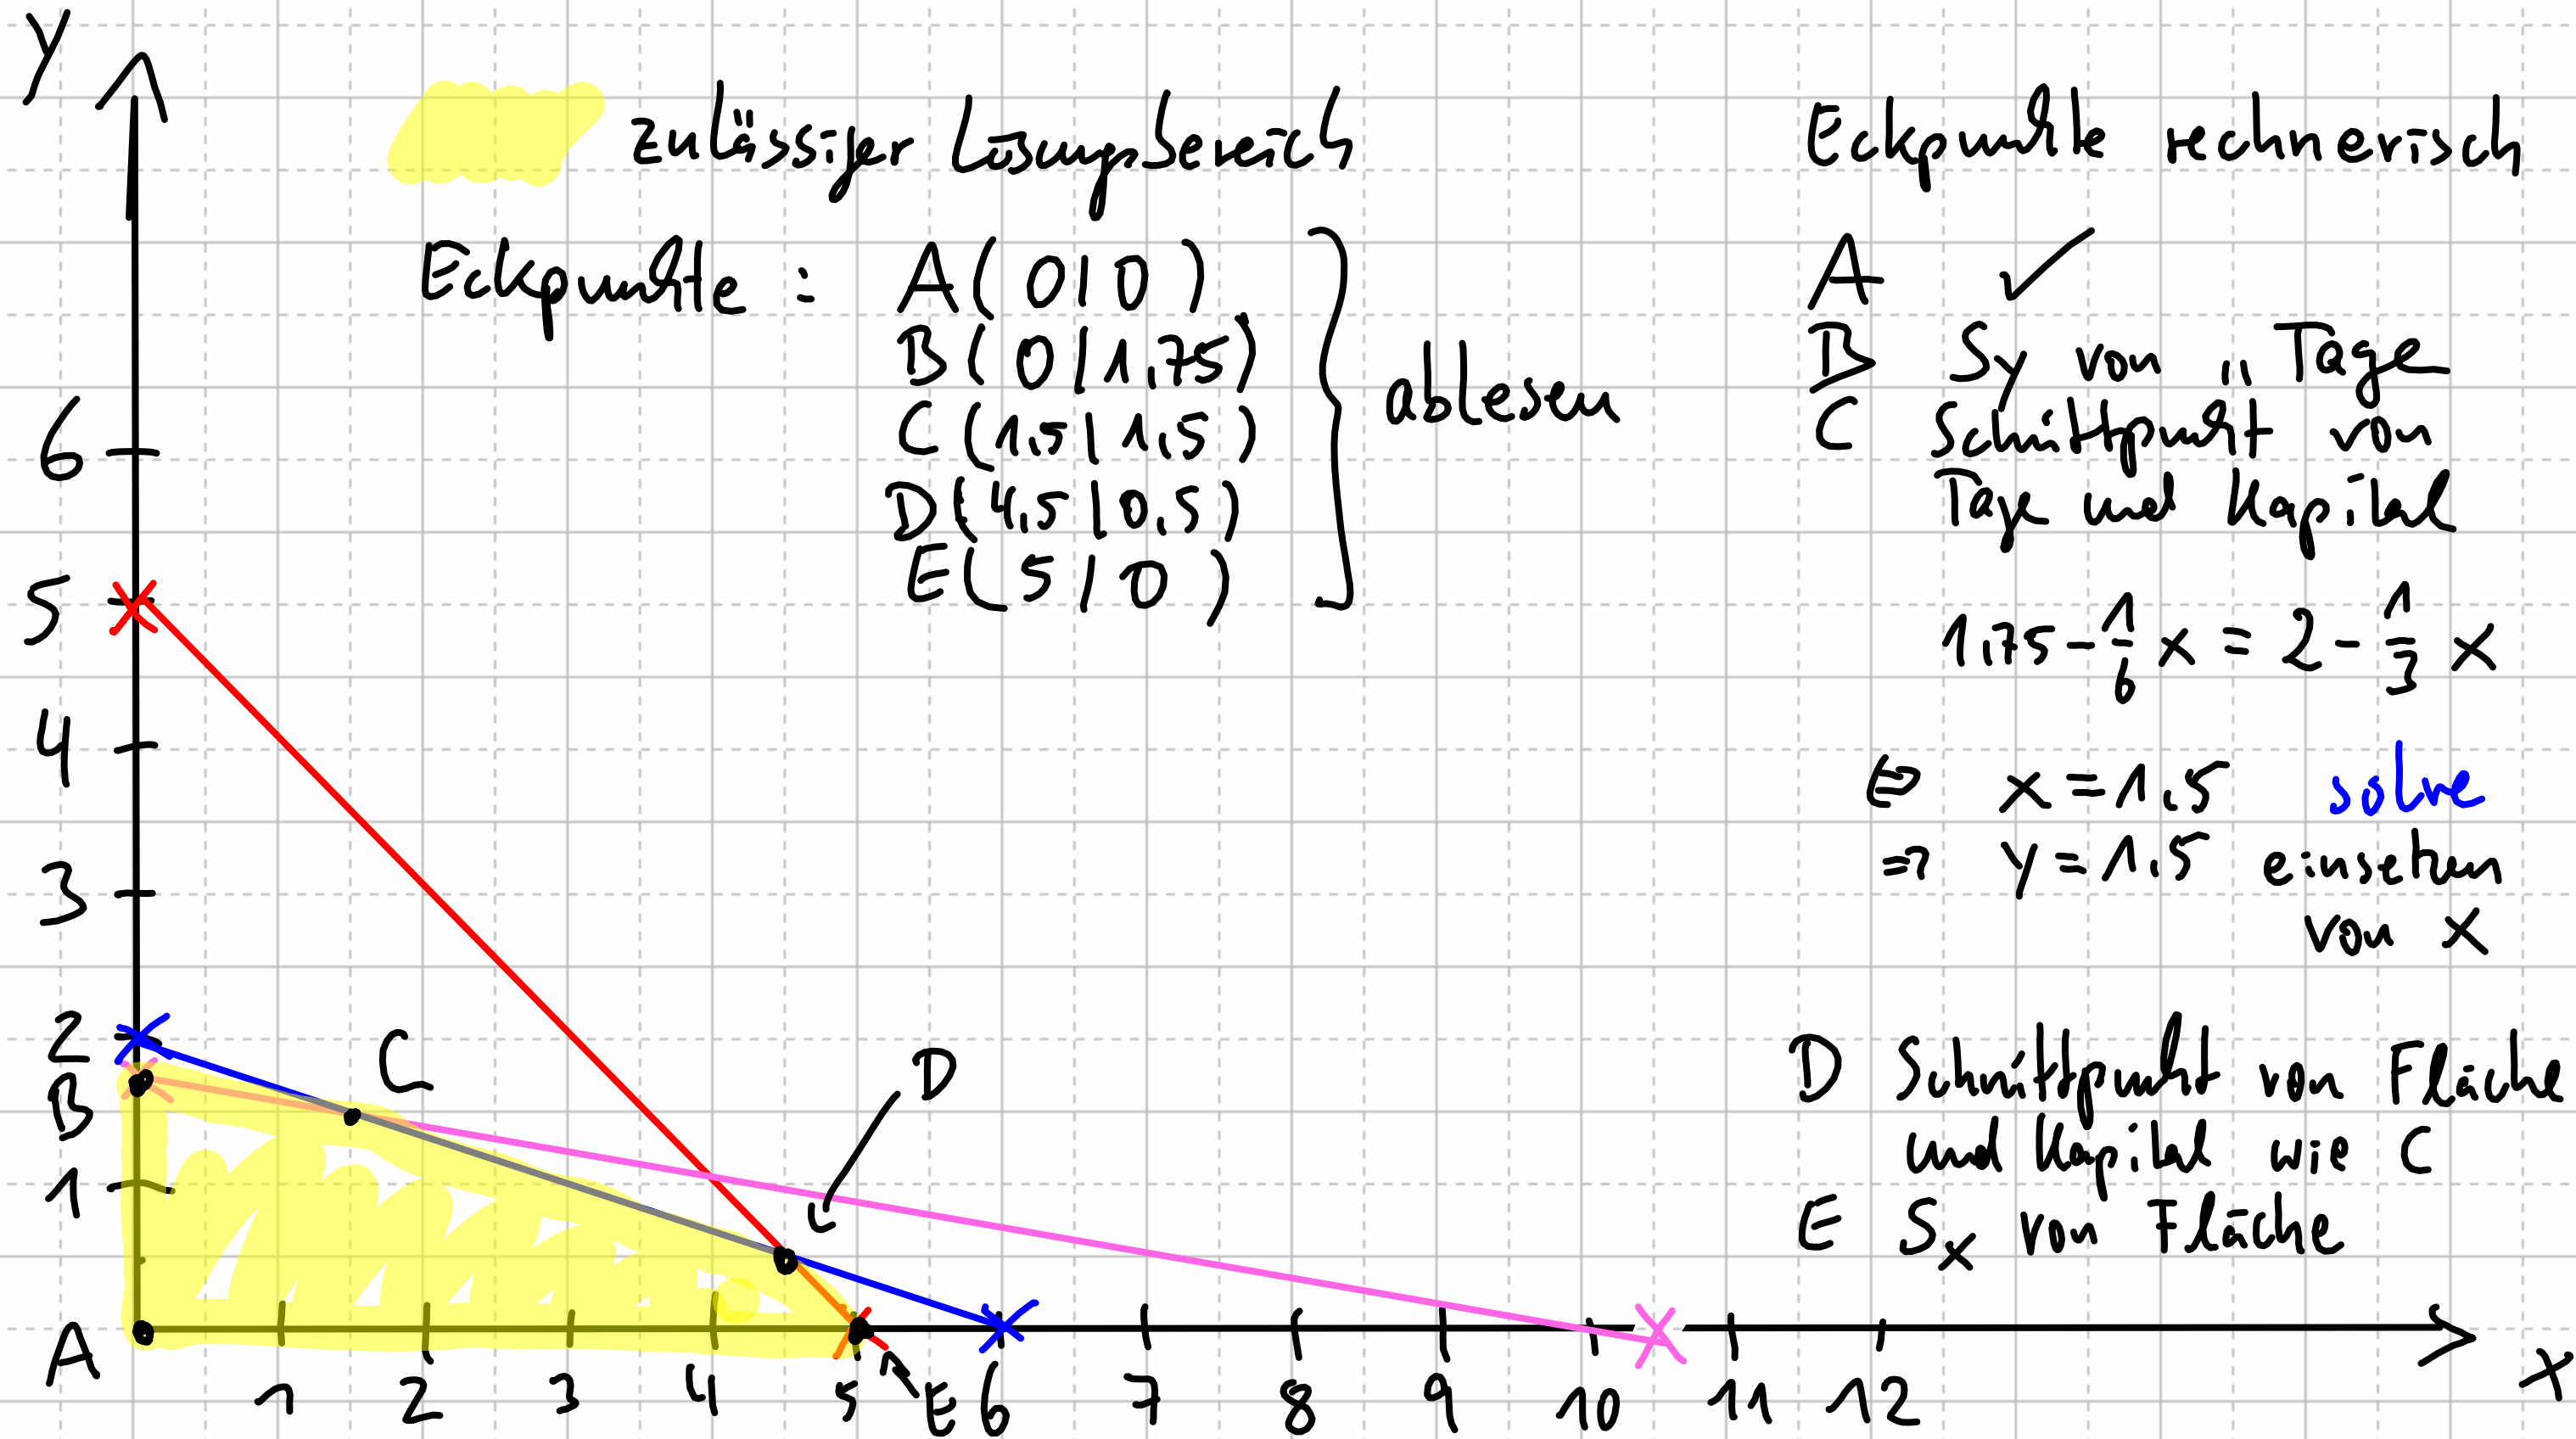 y
zulässiger Lösungsbereich
Eckpunkte : A( 0 | 0 )
B( 0 | 1,75)
C (1,5 | 1,5)
D( 4,5 | 0,5)
E( 5 | 0 )
ablesen
Eckpunkte rechnerisch
A ✓
B Sy von „ Tage
C Schnittpunkt von
Tage und Kapital
1,75 - 1/6 x = 2 - 1/3 x
⇔ x = 1,5 solve
⇒ y = 1,5 einsetzen
von x
D Schnittpunkt von Fläche
und Kapital wie C
E Sx von Fläche
6
5
4
3
2
B
1
A
C
D
1 2 3 4 5 E 6 7 8 9 10 11 12
x